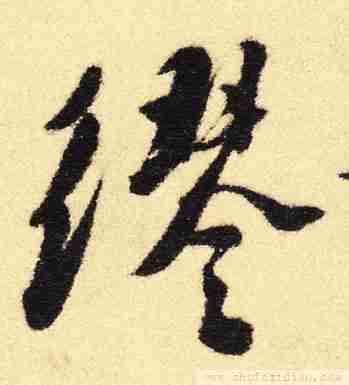 繆
www.shufazidian.com